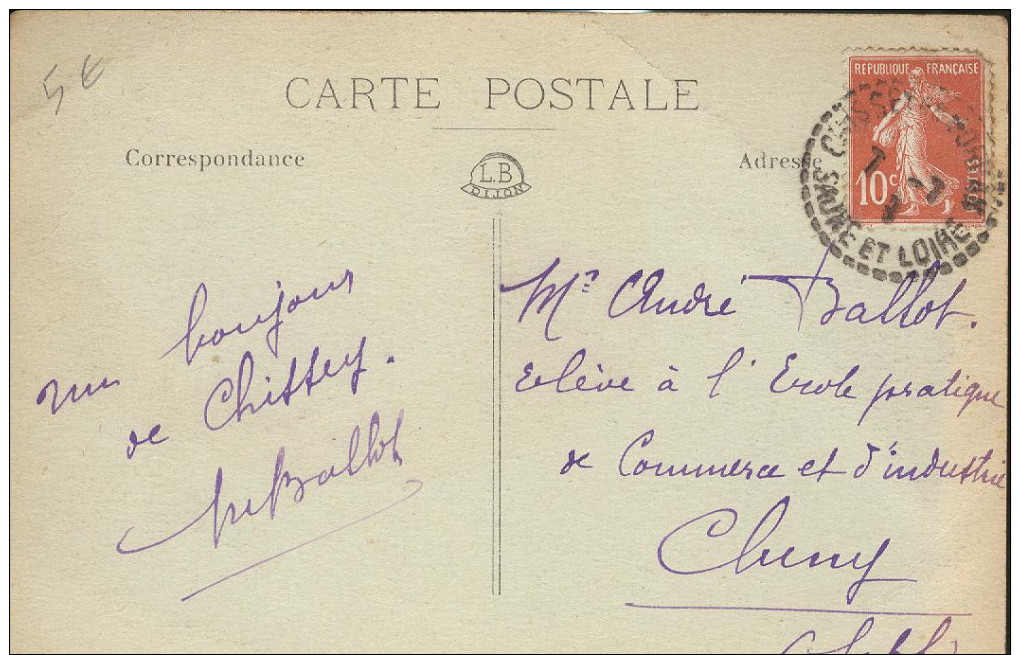 5 €
CARTE POSTALE
Correspondance
Adresse
L.B
DIJON
RÉPUBLIQUE FRANÇAISE
10c
POSTES
SAONE ET LOIRE
un bonjour
de Chissey.
Ballot
Mr André Ballot.
Elève à l'Ecole pratique
de Commerce et d'industrie
Cluny